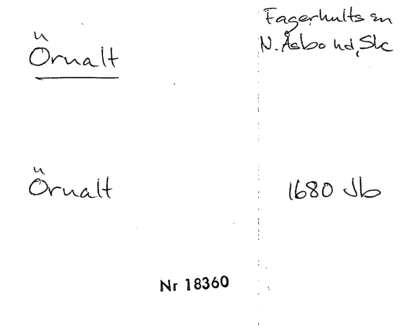 Örnalt
Fagerhults sn
N. Åsbo hd, Sk
Örnalt
1680 Jb
Nr 18360